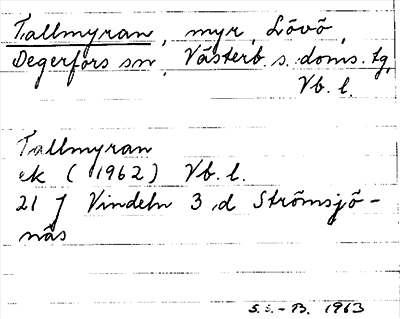 Tallmyran, myr, Lövö,
Degerfors sn, Västerb. s. doms. tg,
Vb. l.
Tallmyran
ek (1962) Vb. l.
21 J Vindeln 3 d Strömsjö-
näs
S.E.-B. 1963